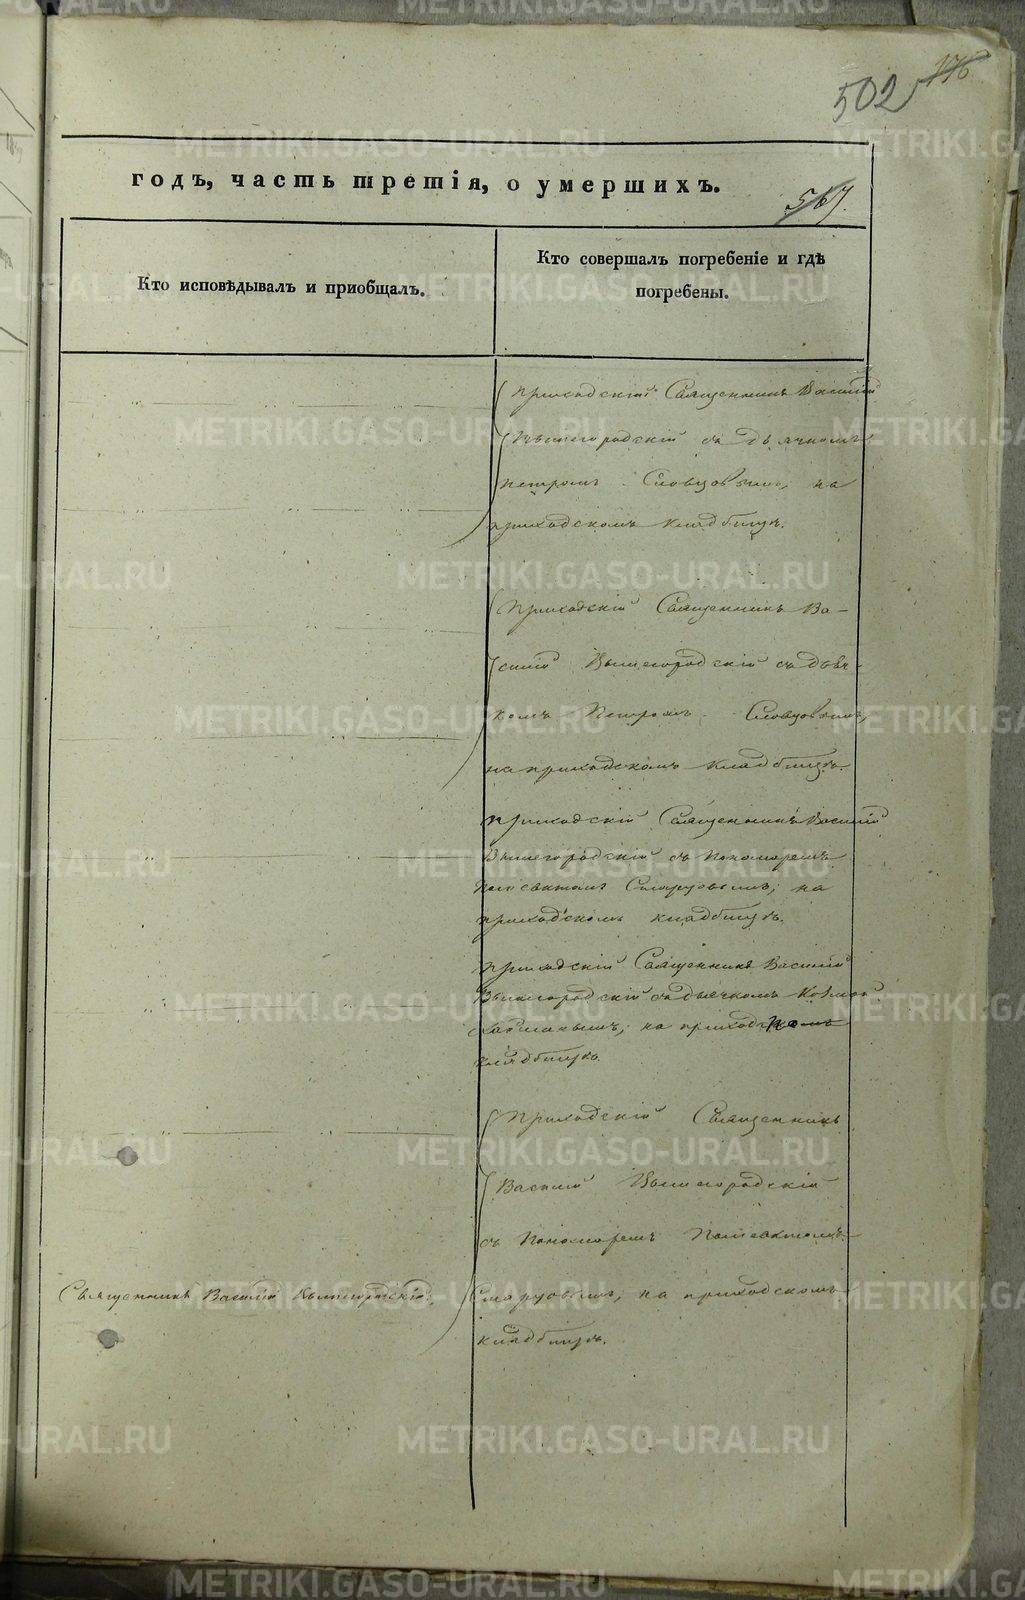 176
502
годъ, часть третія, о умершихъ.
567.
Кто исповѣдывалъ и пріобщалъ.
Кто совершалъ погребеніе и гдѣ
погребены.
приходскій Священникъ Василій
Вышегородскій съ дьячкомъ
Петромъ Словцовымъ, на
приходскомъ кладбищѣ.
Приходскій Священникъ Ва-
силій Вышегородскій съ дьяч-
комъ Петромъ Словцовымъ,
на приходскомъ кладбищѣ.
приходскій Священникъ Василій
Вышегородскій съ Пономаремъ
Полievктомъ Старцовымъ, на
приходскомъ кладбищѣ.
приходскій Священникъ Василій
Вышегородскій съ дьячкомъ Козмой
на приходскомъ
кладбищѣ.
Приходскій Священникъ
Василій Вышегородскій
съ Пономаремъ Полievктомъ
Священникъ Василій Вышегородскій.
Старцовымъ, на приходскомъ
кладбищѣ.
METRIKI.GASO-URAL.RU